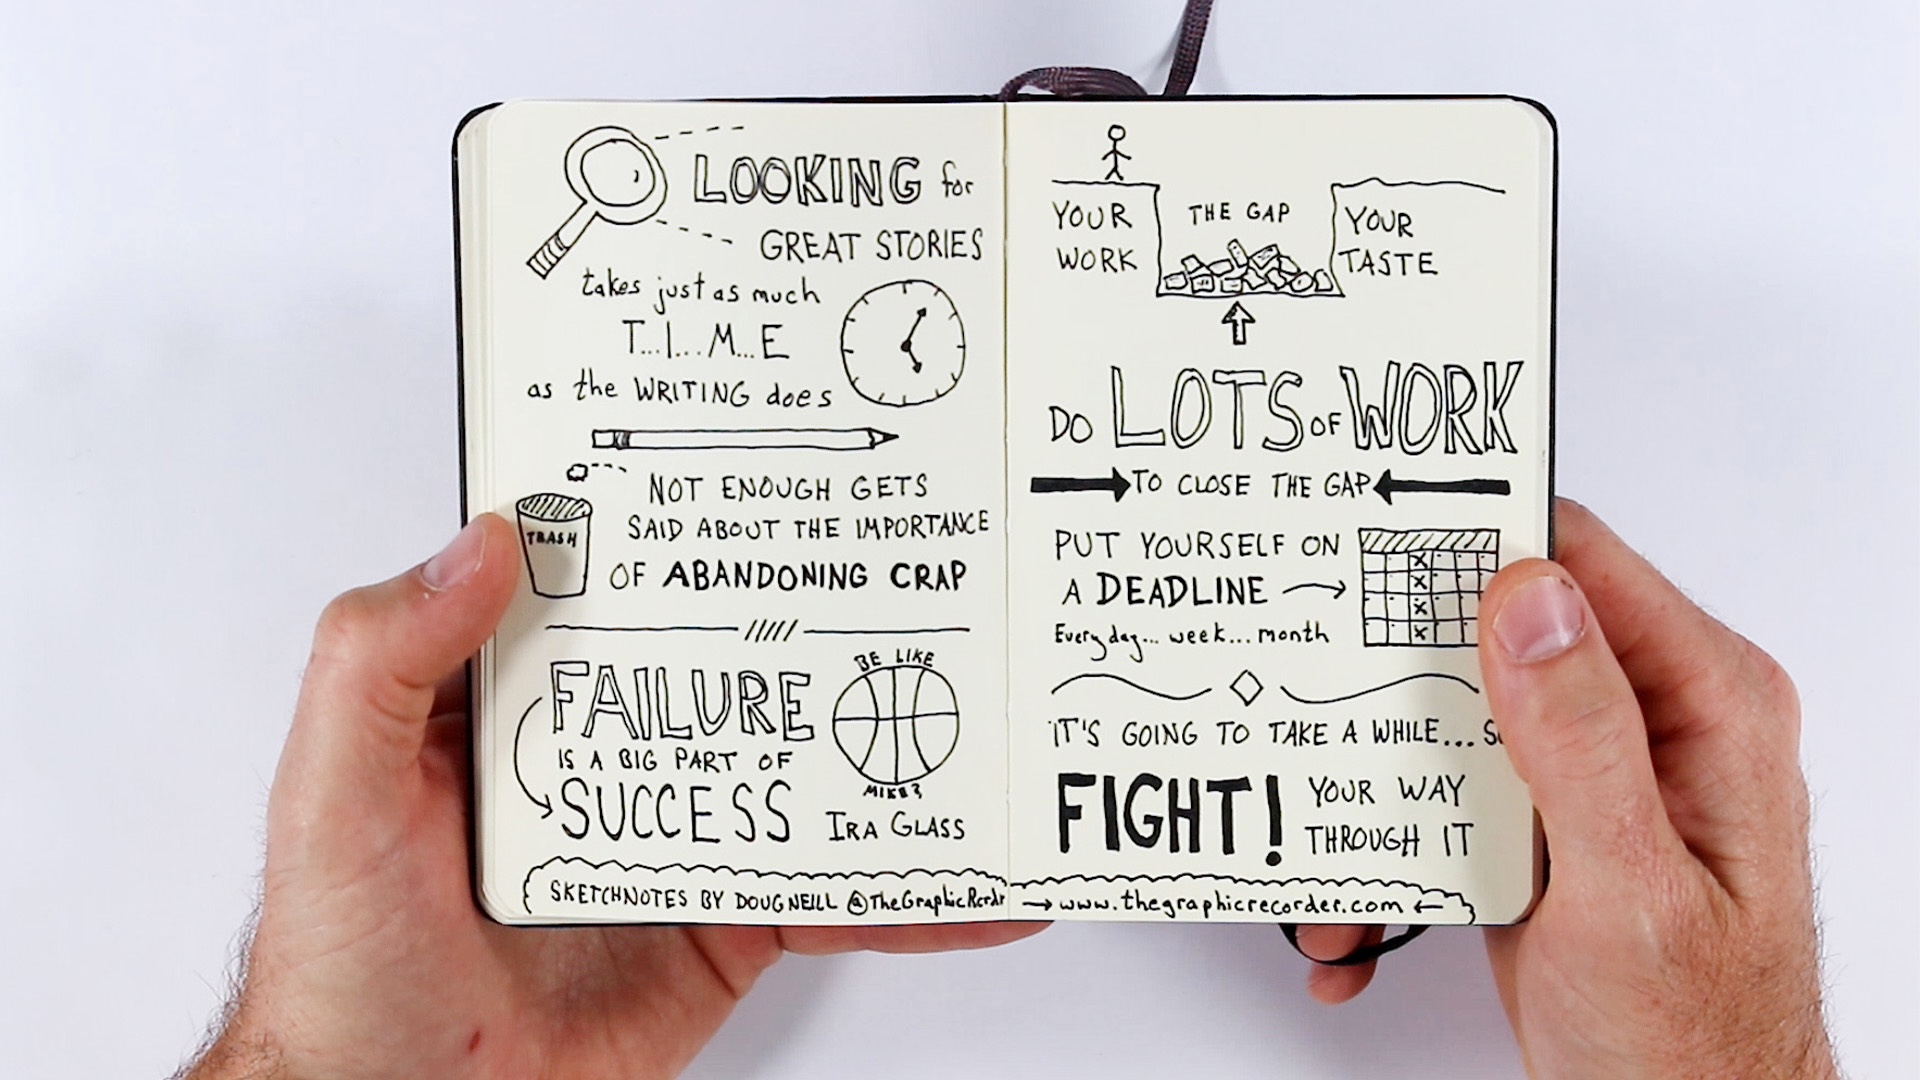 LOOKING for
GREAT STORIES
takes just as much
T...I...M...E
as the WRITING does
TRASH
NOT ENOUGH GETS
SAID ABOUT THE IMPORTANCE
OF ABANDONING CRAP
FAILURE
IS A BIG PART OF
SUCCESS
BE LIKE
MIKE?
IRA GLASS
SKETCHNOTES BY DOUG NEILL @TheGraphicRcrdr
YOUR
WORK
THE GAP
YOUR
TASTE
DO LOTS OF WORK
TO CLOSE THE GAP
PUT YOURSELF ON
A DEADLINE
Every day... week... month
IT'S GOING TO TAKE A WHILE...
FIGHT! YOUR WAY
THROUGH IT
www.thegraphicrecorder.com